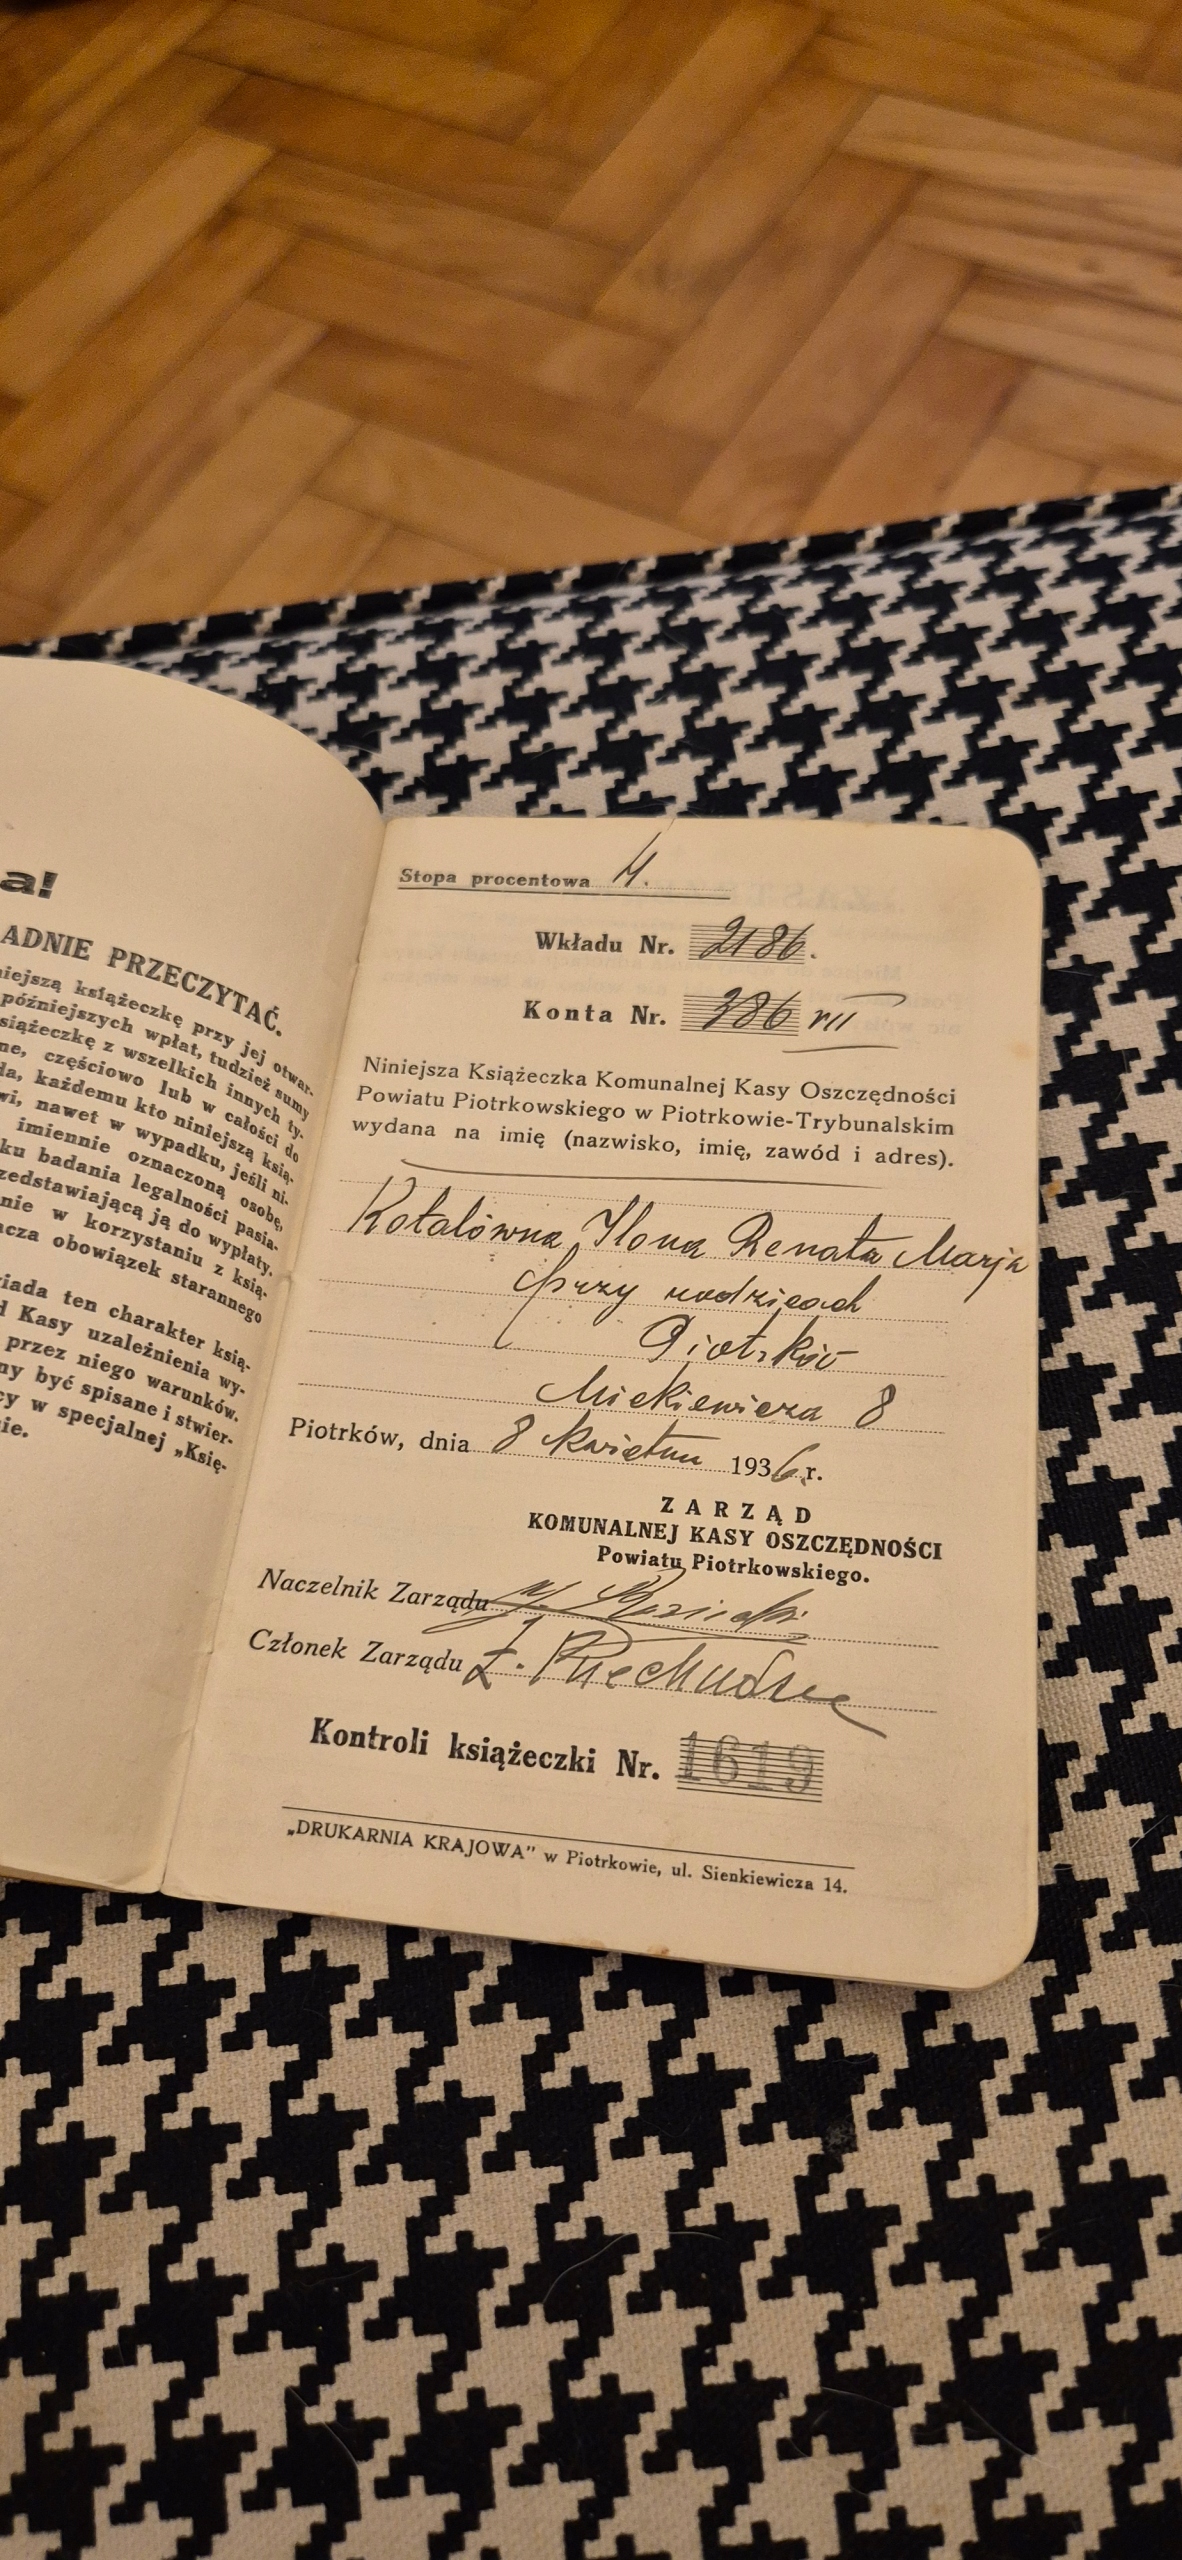 a!
ADNIE PRZECZYTAĆ.
niejszą książeczkę przy jej otwar-
późniejszych wpłat, tudzież sumy
siążeczkę z wszelkich innych ty-
ne, częściowo lub w całości do
da, każdemu kto niniejszą ksią-
wi, nawet w wypadku, jeśli ni-
imiennie oznaczoną osobę,
ku badania legalności pasia-
zedstawiającą ją do wypłaty.
nie w korzystaniu z ksią-
acza obowiązek starannego
iada ten charakter ksią-
d Kasy uzależnienia wy-
przez niego warunków.
ny być spisane i stwier-
cy w specjalnej „Księ-
ie.
Stopa procentowa 4.
Wkładu Nr. 2186.
Konta Nr. 386 VII
Niniejsza Książeczka Komunalnej Kasy Oszczędności
Powiatu Piotrkowskiego w Piotrkowie-Trybunalskim
wydana na imię (nazwisko, imię, zawód i adres).
Kotalówna Ilona Renata Marja
przy rodzicach
Piotrków
Mickiewicza 8
Piotrków, dnia 8 kwietnia 1936 r.
ZARZĄD
KOMUNALNEJ KASY OSZCZĘDNOŚCI
Powiatu Piotrkowskiego.
Naczelnik Zarządu
Członek Zarządu
Kontroli książeczki Nr. 1619
„DRUKARNIA KRAJOWA" w Piotrkowie, ul. Sienkiewicza 14.